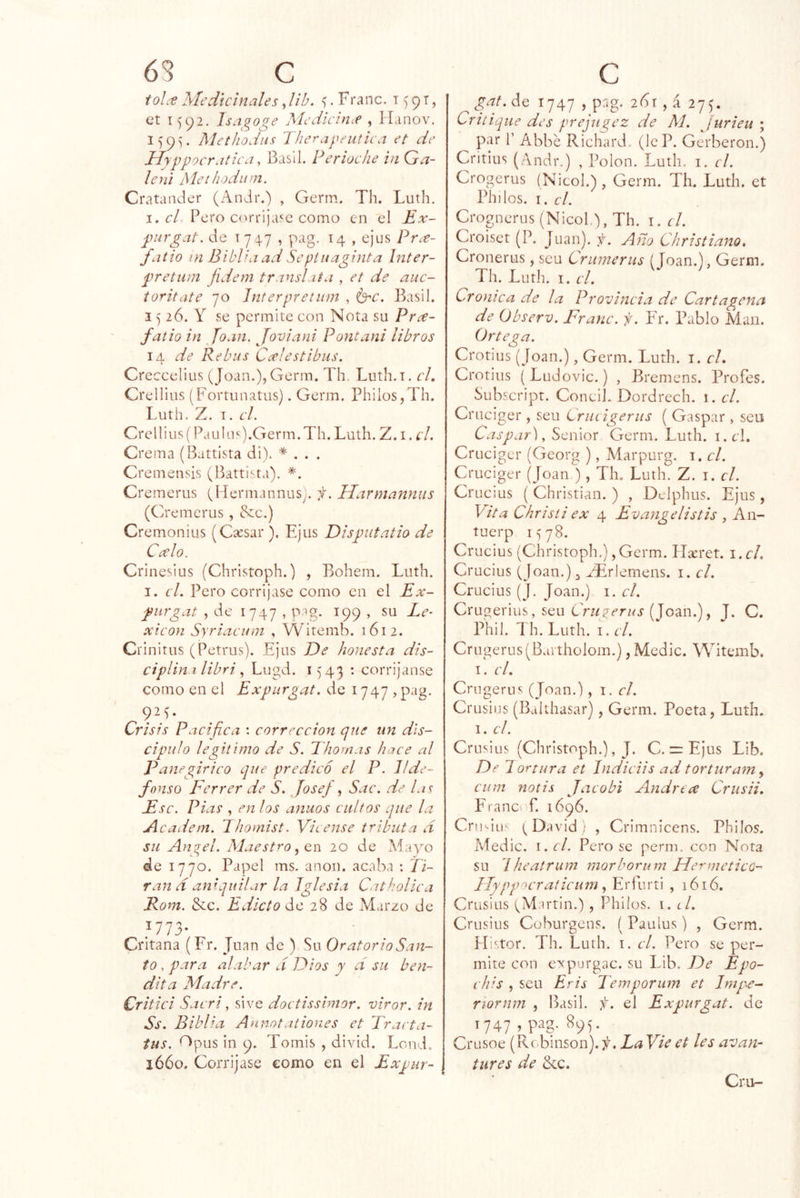 68 C
tolæ Medicinales, lib. 5. Franc. 1591,
et 1592. Isagoge Medicinæ, Hanov.
1595. Methodus Therapeutica et de
Hyppocratica, Basil. Perioche in Ga-
leni Methodum.
Cratander (Andr.) , Germ. Th. Luth.
1. cl. Pero corrijase como en el Ex-
purgat. de 1747 , pag. 14 , ejus Præ-
fatio in Biblia ad Septuaginta Inter-
pretum fidem translata , et de auc-
toritate 70 Interpretum , &c. Basil.
1526. Y se permite con Nota su Præ-
fatio in Joan. Joviani Pontani libros
14 de Rebus Cælestibus.
Creccelius (Joan.), Germ. Th. Luth. 1. cl.
Crellius (Fortunatus). Germ. Philos, Th.
Luth. Z. 1. cl.
Crellius (Paulus). Germ. Th. Luth. Z. 1. cl.
Crema (Battista di). * . . .
Cremensis (Battista). *.
Cremerus (Hermannus). ỳ. Harmannus
(Cremerus , &c.)
Cremonius (Cæsar ). Ejus Disputatio de
Cælo.
Crinesius (Christoph.) , Bohem. Luth.
1. cl. Pero corrijase como en el Ex-
purgat , de 1747 , pag. 199 , su Le-
xicon Syriacum , Witemb. 1612.
Crinitus (Petrus). Ejus De honesta dis-
ciplina libri, Lugd. 1543 : corrijanse
como en el Expurgat. de 1747 , pag.
925.
Crisis Pacifica : correccion que un dis-
cipulo legitimo de S. Thomas hace al
Panegirico que predicó el P. Ilde-
fonso Ferrer de S. Josef , Sac. de las
Esc. Pias , en los anuos cultos que la
Academ. Thomist. Vicense tributa á
su Angel. Maestro, en 20 de Mayo
de 1770. Papel ms. anon. acaba : Ti-
ran á aniquilar la Iglesia Catholica
Rom. &c. Edicto de 28 de Marzo de
1773.
Critana (Fr. Juan de ) Su Oratorio San-
to, para alabar á Dios y á su ben-
dita Madre.
Critici Sacri, sive doctissimor. viror. in
Ss. Biblia Annotationes et Tracta-
tus. Opus in 9. Tomis , divid. Lond.
1660. Corrijase como en el Expur-
C
gat. de 1747 , pag. 261 , á 275.
Critique des prejugez de M. Jurieu ;
par l' Abbè Richard. (le P. Gerberon.)
Critius (Andr.) , Polon. Luth. 1. cl.
Crogerus (Nicol.) , Germ. Th. Luth. et
Philos. 1. cl.
Crognerus (Nicol.), Th. 1. cl.
Croiset (P. Juan). ỳ. Año Christiano.
Cronerus , seu Crumerus (Joan.), Germ.
Th. Luth. 1. cl.
Cronica de la Provincia de Cartagena
de Observ. Franc. ỳ. Fr. Pablo Man.
Ortega.
Crotius (Joan.) , Germ. Luth. 1. cl.
Crotius (Ludovic.) , Bremens. Profes.
Subscript. Concil. Dordrech. 1. cl.
Cruciger , seu Crucigerus (Gaspar , seu
Caspar), Senior. Germ. Luth. 1. cl.
Cruciger (Georg ) , Marpurg. 1. cl.
Cruciger (Joan.) , Th. Luth. Z. 1. cl.
Crucius (Christian.) , Delphus. Ejus ,
Vita Christi ex 4 Evangelistis , An-
tuerp 1578.
Crucius (Christoph.) , Germ. Hæret. 1. cl.
Crucius (Joan.), Ærlemens. 1. cl.
Crucius (J. Joan.) 1. cl.
Crugerius, seu Crugerus (Joan.), J. C.
Phil. Th. Luth. 1. cl.
Crugerus (Bartholom.) , Medic. Witemb.
1. cl.
Crugerus (Joan.) , 1. cl.
Crusius (Balthasar) , Germ. Poeta, Luth.
1. cl.
Crusius (Christoph.), J. C. = Ejus Lib.
De Tortura et Indiciis ad torturam,
cum notis Jacobi Andreæ Crusii.
Franc. f. 1696.
Crusius (David) , Crimnicens. Philos.
Medic. 1. cl. Pero se perm. con Nota
su Theatrum morborum Hermetico-
Hyppocraticum, Erfurti , 1616.
Crusius (Martin.) , Philos. 1. cl.
Crusius Coburgens. (Paulus) , Germ.
Histor. Th. Luth. 1. cl. Pero se per-
mite con expurgac. su Lib. De Epo-
chis , seu Eris Temporum et Impe-
riorum , Basil. ỳ. el Expurgat. de
1747 , pag. 895.
Crusoe (Robinson). ỳ. La Vie et les avan-
tures de &c.
Cru-